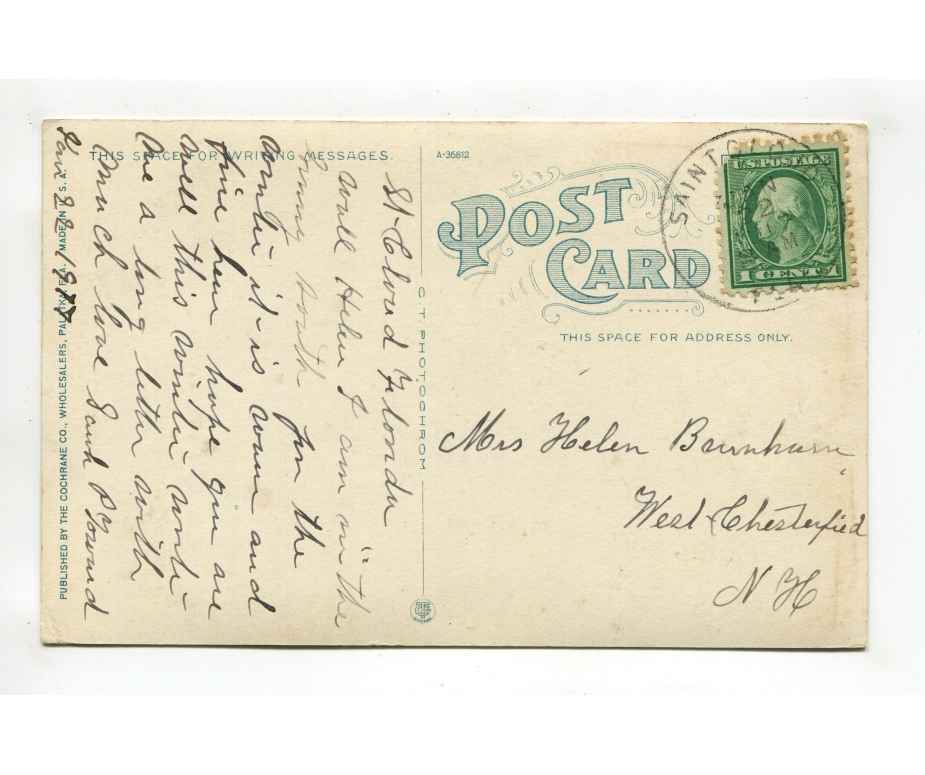 THIS SPACE FOR WRITING MESSAGES.
A-36612
POST
CARD
THIS SPACE FOR ADDRESS ONLY.
SAINT CLOUD
FLA.
U.S. POSTAGE
1 CENT 1
St-Cloud Florida
Well Helen I am in the
Sunny South for the
Winter it is warm and
fine here hope you are
well this winter write
me a long letter with
Much love Sarah P
Nov 22 1917
Mrs Helen Barnham
West Chesterfield
N H
C.T. PHOTOCHROM
PUBLISHED BY THE COCHRANE CO., WHOLESALERS, PALATKA, FLA. MADE IN U.S.A.